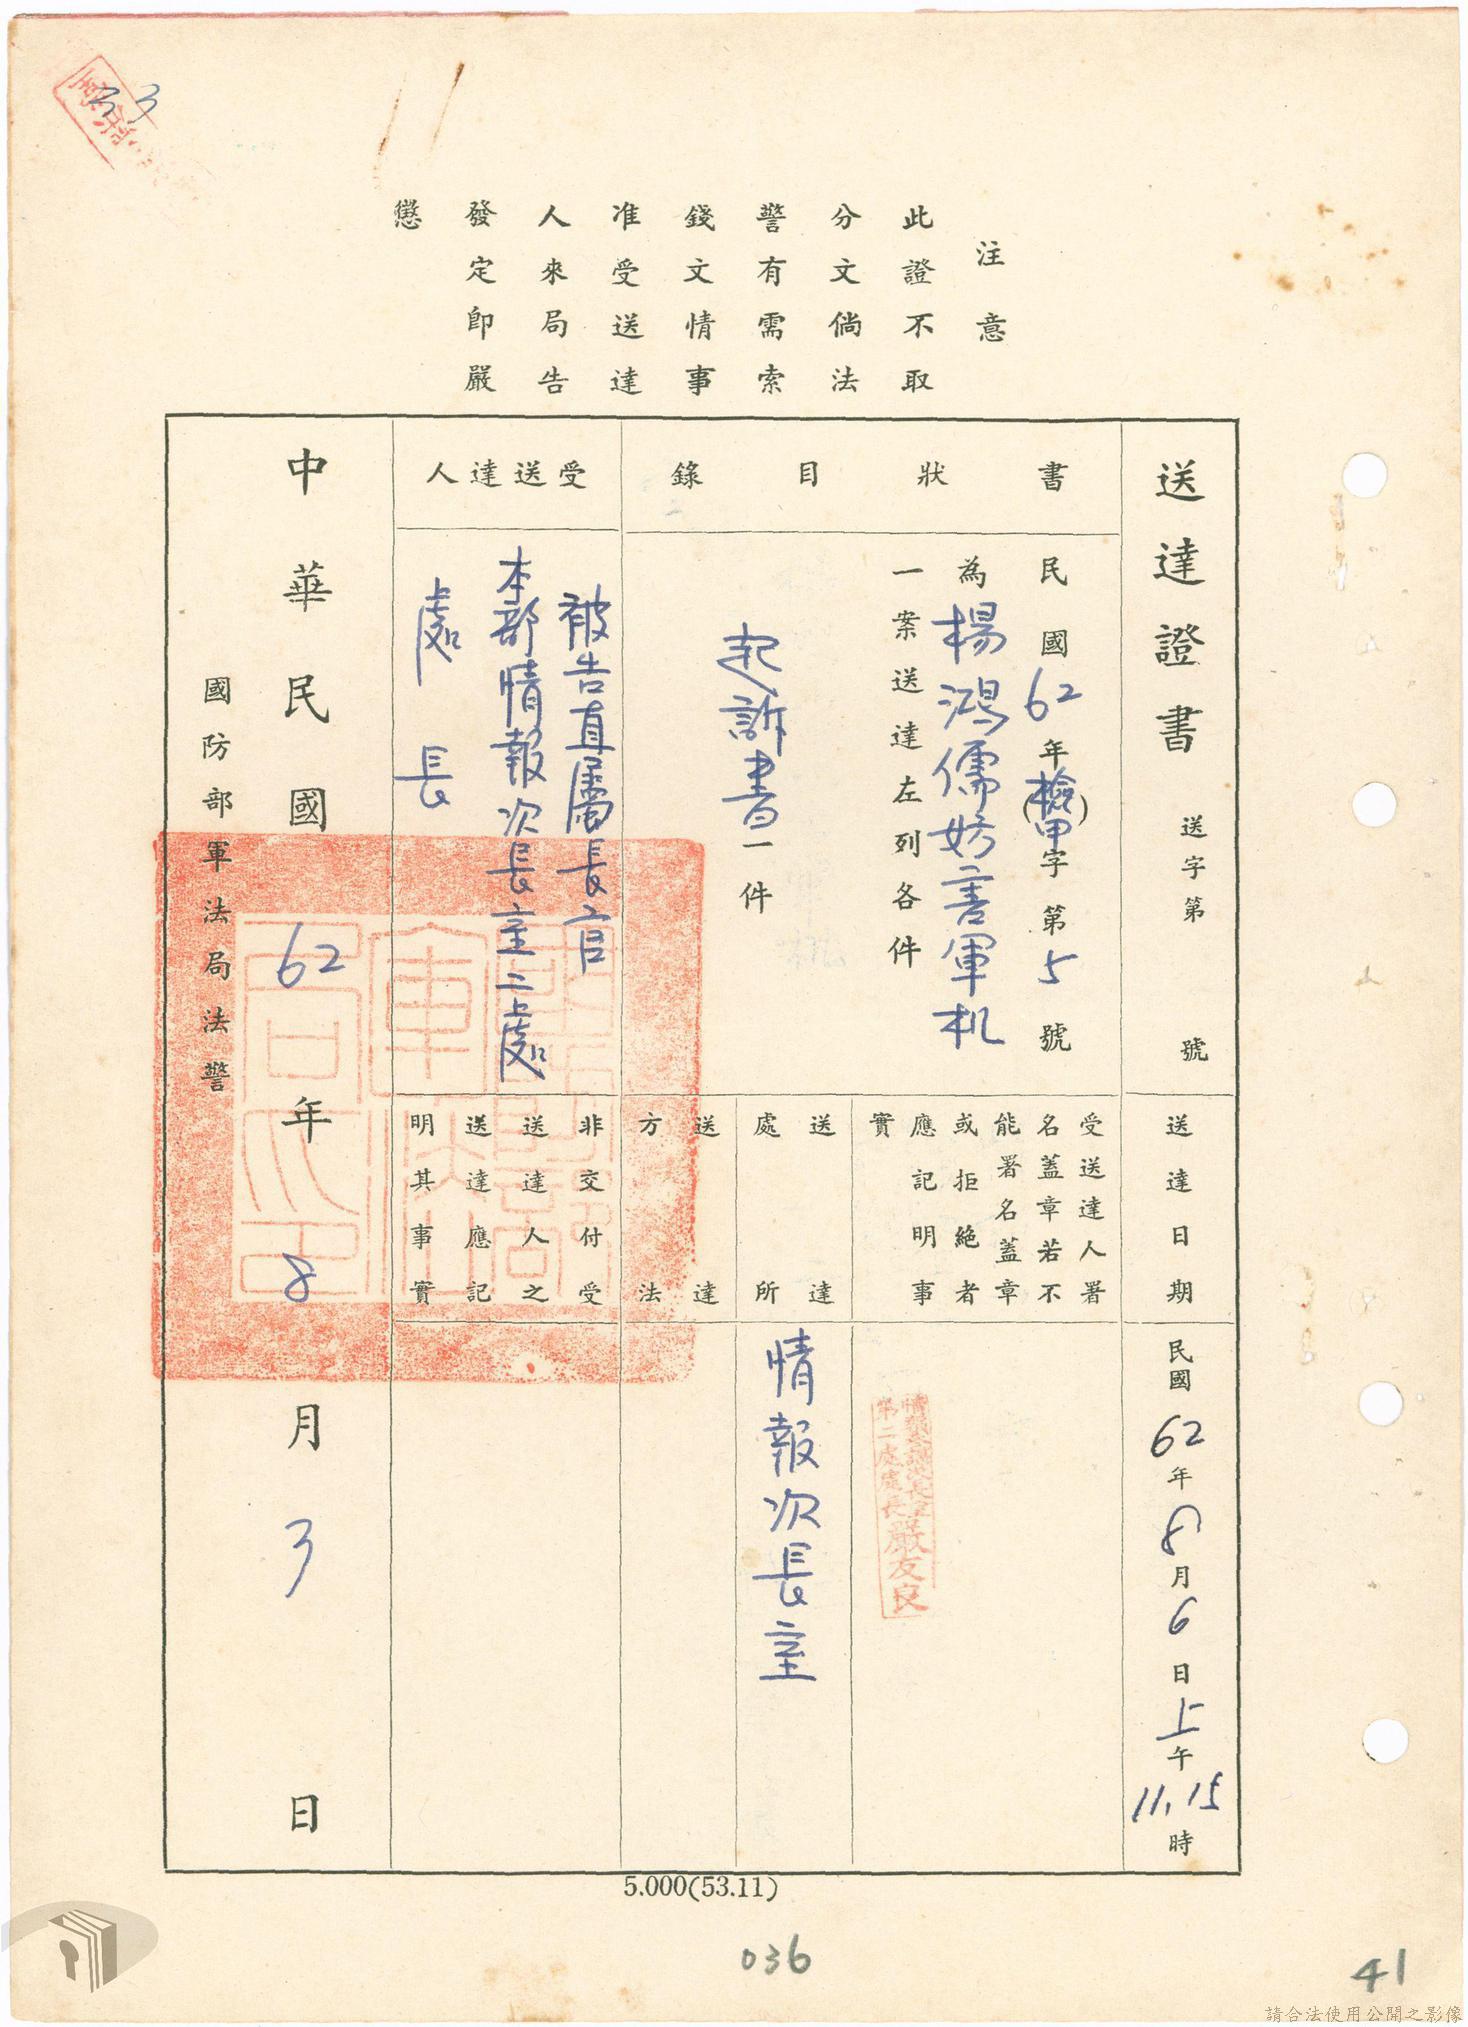 33
注意
此證不取
分文倘法
警有需索
錢文情事
准受送達
人來局告
發定即嚴
懲
送達證書 送字第 號
書狀目錄
民國62年(檢甲)字第5號
為楊鴻儒妨害軍机
一案送達左列各件
起訴書一件
受送達人
被告直屬長官
本部情報次長室二處
處長
送達日期
民國62年8月6日上午11,15時
受送達人署
名蓋章若不
能署名蓋章
或拒絕者
應記明事
實
情報參謀次長室
第二處處長嚴友良
送達
處所
情報次長室
送達
方法
非交付受
送達人之
送達應記
明其事實
中華民國62年8月3日
國防部軍法局法警
5.000(53.11)
036
41
請合法使用公開之影像